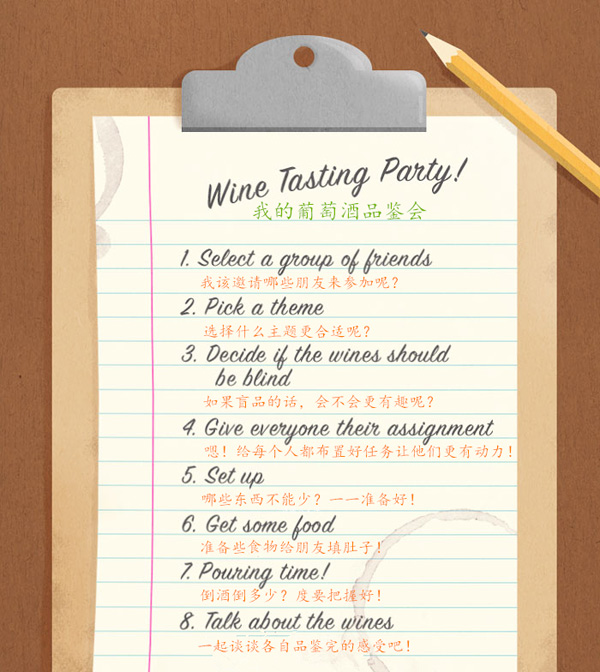 Wine Tasting Party!
我的葡萄酒品鉴会
1. Select a group of friends
我该邀请哪些朋友来参加呢?
2. Pick a theme
选择什么主题更合适呢?
3. Decide if the wines should
be blind
如果盲品的话，会不会更有趣呢?
4. Give everyone their assignment
嗯！给每个人都布置好任务让他们更有动力！
5. Set up
哪些东西不能少？一一准备好！
6. Get some food
准备些食物给朋友填肚子！
7. Pouring time!
倒酒倒多少？度要把握好！
8. Talk about the wines
一起谈谈各自品鉴完的感受吧！